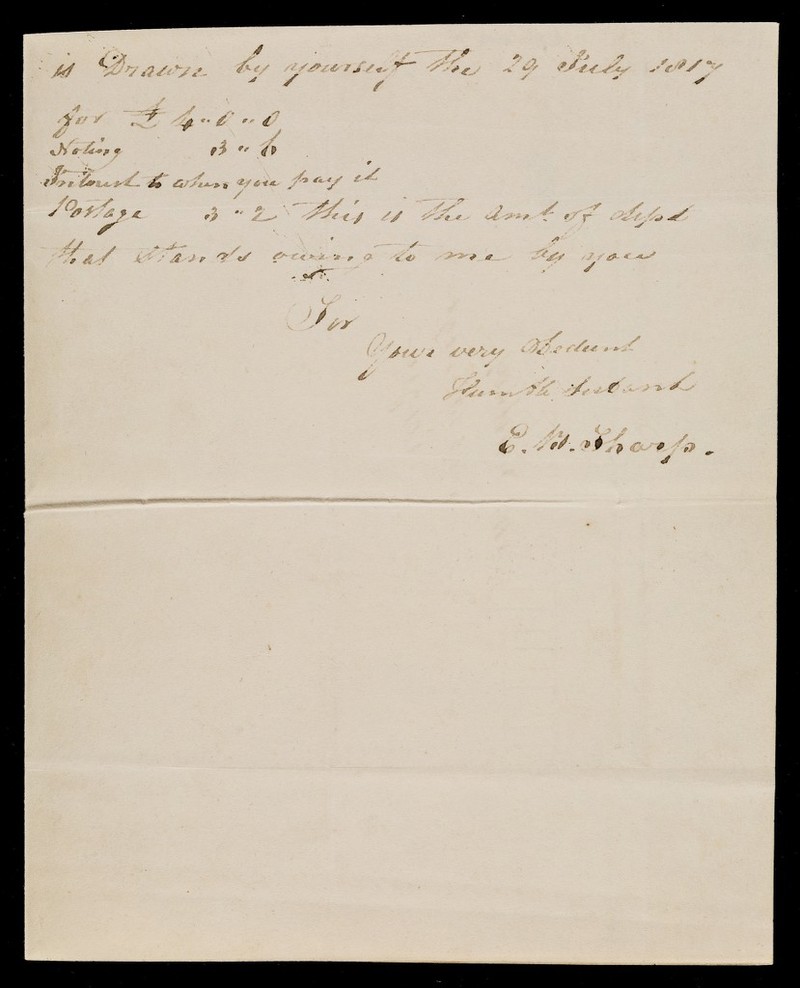 is Drawn by yourself the 29 July 1817
for £ 4 " 0 " 0
Noting 3 " 6
Intrust to when you pay it
Postage 3 " 2 this is the Amt. of
that stands owing to me by you
Sir
Your very Obedunt
Humble Servant
E. W. Tharp.